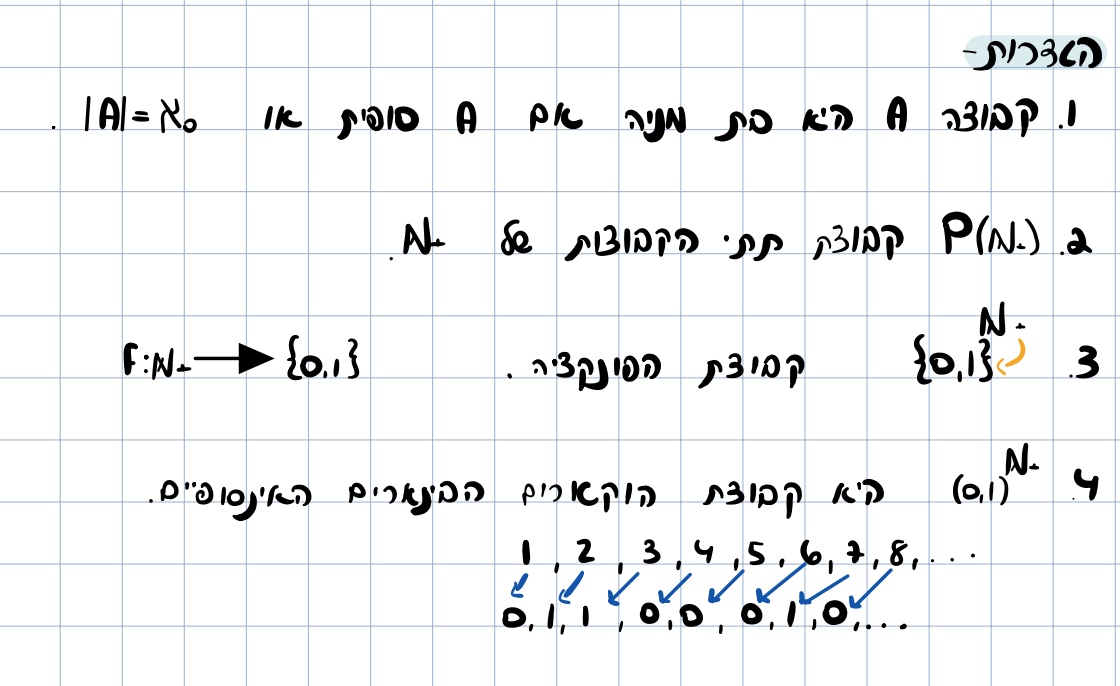 הגדרות-
1. קבוצה A היא בת מניה אם A סופית או |A|=ℵ₀ .
2. P(N₊) קבוצת תתי הקבוצות של N₊.
3. {0,1}^N₊ קבוצת הפונקציה. F:N₊→{0,1}
4. (0,1)^N₊ היא קבוצת הוקטרים הבינארים האינסופיים.
1, 2, 3, 4, 5, 6, 7, 8, ...
0, 1, 1, 0, 0, 0, 1, 0, ...